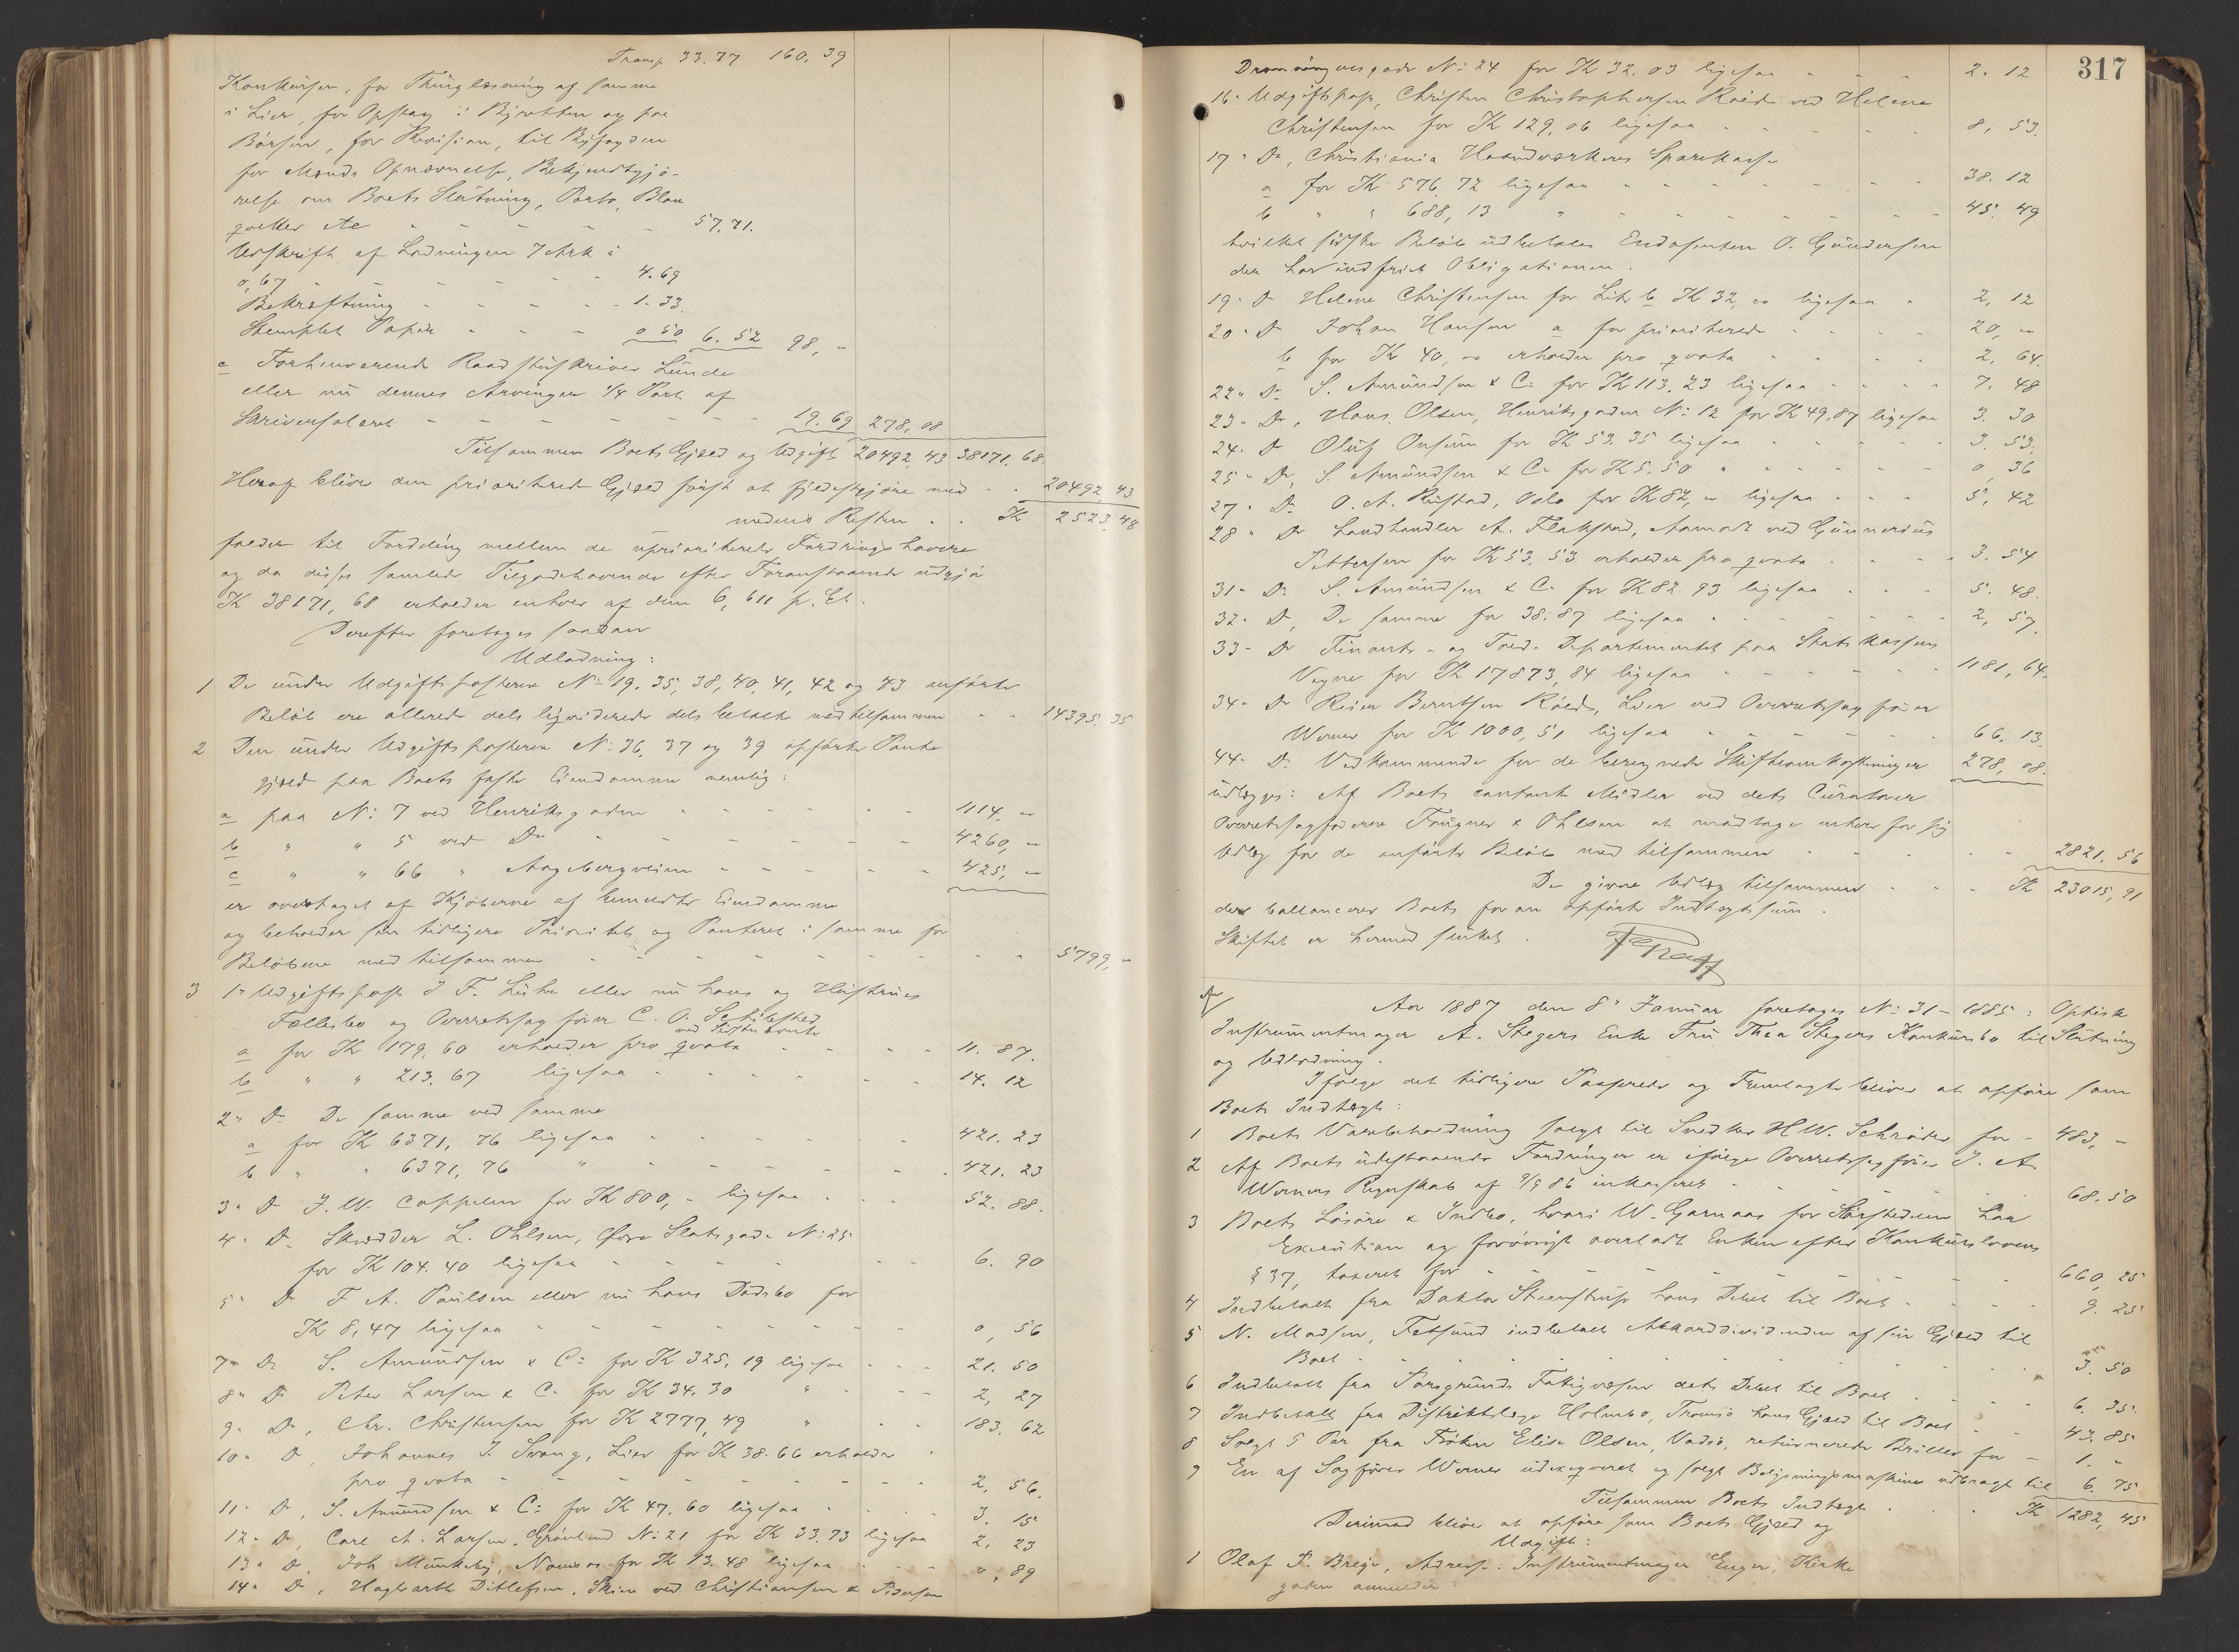 Transp 33.77 160,39
Konkursen, for Thinglæsning af samme
i Lier, for Opslag i Byretten og paa
Børsen, for Revision, til Byfogden
for Mænds Opnævnelse, Bekjendtgjø-
relse om Boets Slutning, Porto, Blan
quetter etc 57,71.
Udskrift af Lodningen 7 Ark à
0,67 4.69
Bekræftning 1.33.
Stemplet Papir 0 50 6.52 98,"
c Forhenværende Raadstuskriver Lunde
eller nu dennes Arvinger 1/4 Part af
Skriversalæret 19.69 278,08
Tilsammen Boets Gjæld og Udgift 20492,43 38171.68.
Heraf bliver den prioriterede Gjæld først at fyldestgjøre med 20492,43
medens Resten K 2523,48
falder til Fordeling mellem de upriorterede Fordringshavere
og da disses samlede Tilgodehavende efter Foranstaaende udgjør
K 38171,68 erholder enhver af dem 6,611 p. Ct.
Derefter foretages saadan
Udlodning:
1 De under Udgiftsposterne No 19. 35, 38, 40, 41, 42 og 43 anførte
Beløb ere allerede dels liqviderede dels betalt med tilsammen 14395.35
2 Den under Udgiftsposterne No. 36, 37 og 39 opførte Pante
gjæld paa Boets faste Eiendomme nemlig:
a paa No. 7 ved Henriksgaden 1114,"
b " " 5 ved Do 4260,"
c " " 66 " Aagebergveien 425,"
er overtaget af Kjøberne af bemeldte Eiendomme
og beholder sin tidligere Prioritet og Panteret i samme for
Beløbene med tilsammen 5799,"
3 1" Udgiftspost J F. Lühr eller nu hans og Hustrues
Fællesbo og Overretssagfører C. O. Schibsted
a for K 179,60 erholder pro qvota 11.87.
b " " 213.67 ligesaa 14.12
2" Do De samme ved samme
a for K 6371,76 ligesaa 421.23
b " " 6371,76 " 421.23
3" Do J. W. Cappelen for K 800,- ligesaa 52.88.
4" Do Skrædder L. Ohlsen, Øvre Slotsgade No. 25
for K 104.40 ligesaa 6.90
5" Do F A. Paulsen eller nu hans Dødsbo for
K 8,47 ligesaa 0,56
7" Do S. Amundsen & Co for K 325,19 ligesaa 21.50
8" Do Peter Larsen & Co for K 34.30 " 2,27
9" Do, Chr. Christensen for K 2777,49 " 183.62
10" Do, Johannes J. Svang, Lier for K 38.66 erholder
pro qvota 2,56.
11" Do, S. Amundsen & Co for K 47.60 ligesaa 3.15
12" Do, Carl A. Larsen, Grønland No. 21 for K 33.73 ligesaa 2,23
13" Do, Joh Munkeby, for K 13.48 ligesaa 0,89
14" Do, Hagbarth Ditlefsen, Skien ved Christiansen & Pedersen
317
Dronningensgade No. 24 for K 32.03 ligesaa 2.12
16" Udgiftspost, Christen Christophersen Roed ved Helene
Christensen for K 129,06 ligesaa 8,53.
17" Do, Christiania Haandværkeres Sparekasse
a for K 576.72 ligesaa 38.12
b " " 688,13 " 45.49
hvilket sidste Beløb udbetales Endosenten O. Gundersen
der har indfriet Obligationen.
19" Do Helene Christensen for Litr b K 32," ligesaa 2,12
20" Do Johan Hansen a for prioriterede 20,"
b for K 40," erholder pro qvota 2,64.
22" Do S. Amundsen & Co for K 113,23 ligesaa 7,48
23" Do, Hans Olsen, Henriksgaden No. 12 for K 49,87 ligesaa 3.30
24" Do Oluf Onsum for K 53.35 ligesaa 3.53.
25" Do, S. Amundsen & Co for K 5.50 " 0,36
27" Do O. A. Rustad, Oslo for K 82," ligesaa 5,42
28" Do Landhandler A. Flakstad, Aamodt ved Gunnerius
Pettersen for K 53,53 erholder pro qvota 3.54
31" Do S. Amundsen & Co for K 82.93 ligesaa 5.48.
32" Do, De samme for 38.87 ligesaa 2,57.
33" Do Finants- og Told- Departementet paa Statskassens
Vegne for K 17873,84 ligesaa 1181,64.
34" Do Reier Berntsen Roed, Lier ved Overretssagfører
Werner for K 1000,51 ligesaa 66.13.
44" Do Vedkommende for de beregnede Skifteomkostninger 278,08.
udlægges: Af Boets contante Midler ved dets Curatorer
Overretssagførerne Fougner & Ohlsen at modtage enhver for sig
Udlæg for de anførte Beløb med tilsammen 2821,56
De givne Udlæg tilsammen K 23015,91
der ballancerer Boets foran opførte Indtægtssum.
Skiftet er hermed sluttet.
Aar 1887 den 8de Januar foretages No. 31 - 1885: Optisk
Instrumentmager A. Stegers Enke Fru Thea Stegers Konkursbo til Slutning
og Udlodning.
Ifølge det tidligere Passerede og Fremlagte bliver at opføre som
Boets Indtægt:
1 Boets Varebeholdning solgt til Snedker H W. Schrøder for 483,-
2 Af Boets udestaaende Fordringer er ifølge Overretssagfører J. A.
Werners Regnskab af 9/9 86 inkasseret 68.50
3 Boets Løsøre & Indbo, hvori W. Garnaas for Størstedelen har
Exekution og forøvrigt overladt Enken efter Konkurslovens
§ 37, taxeret for 660,25
4 Indbetalt fra Doktor Steenstrup hans Debet til Boet 9.25
5 N. Madsen, Fetsund indbetalt Akkorddividenden af sin Gjæld til
Boet 3.50
6 Indbetalt fra Porsgrunds Fattigvæsen dets Debet til Boet 6.35.
7 Indbetalt fra Distriktslæge Holmbo, Tromsø hans Gjæld til Boet 43.85
8 Solgt 5 Par fra Frøken Elise Olsen, Vadsø, returnerede Briller for 1."
9 En af Sagfører Werner udexeqveret og solgt Belysningsmaskine udbragt til 6.75
Tilsammen Boets Indtægt K 1282,45
Derimod bliver at opføre som Boets Gjæld og
Udgift:
1 Olaf P. Breje, Adresse: Instrumentmager Enger, Kirke
gaden anmelder: